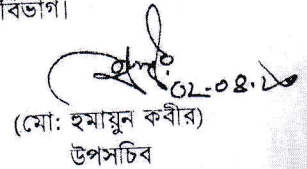 বিভাগ।
০২.০৪.২০
(মো: হুমায়ুন কবীর)
উপসচিব